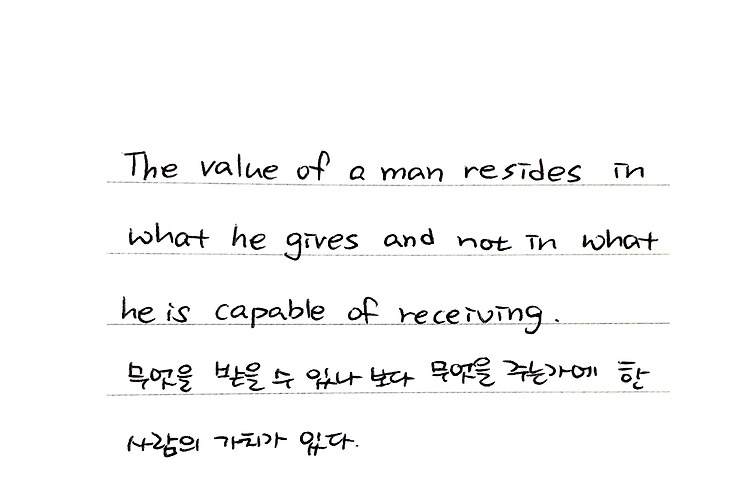 The value of a man resides in
what he gives and not in what
he is capable of receiving.
무엇을 받을 수 있나 보다 무엇을 주는가에 한
사람의 가치가 있다.